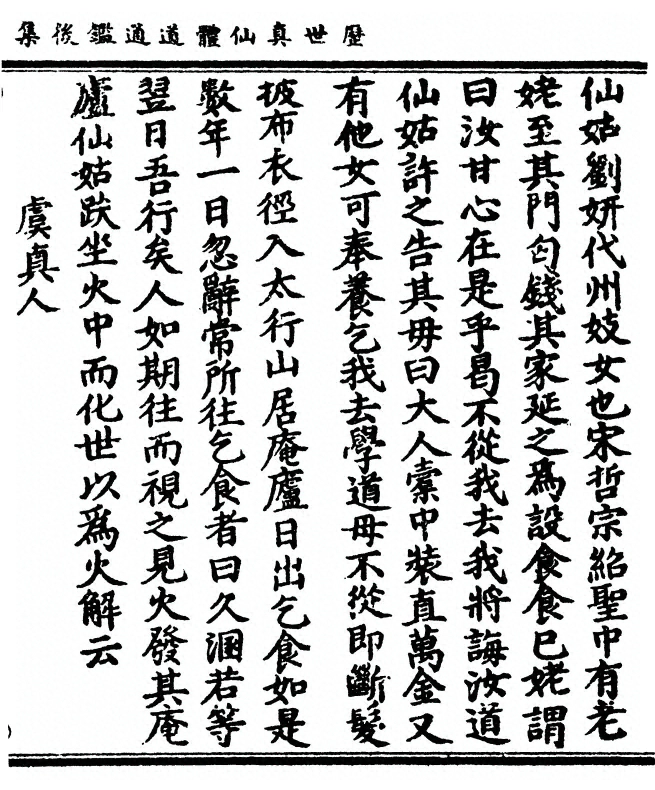 歷世真仙體道通鑑後集
仙姑劉妍代州妓女也宋哲宗紹聖中有老
姥至其門匄錢其家延之爲設食食已姥謂
曰汝甘心在是乎曷不從我去我將誨汝道
仙姑許之告其母曰大人橐中裝直萬金又
有他女可奉養乞我去學道母不從即斷髮
披布衣徑入太行山居庵廬日出乞食如是
數年一日忽辭常所往乞食者曰久溷若等
翌日吾行矣人如期往而視之見火發其庵
廬仙姑趺坐火中而化世以爲火解云
虞真人